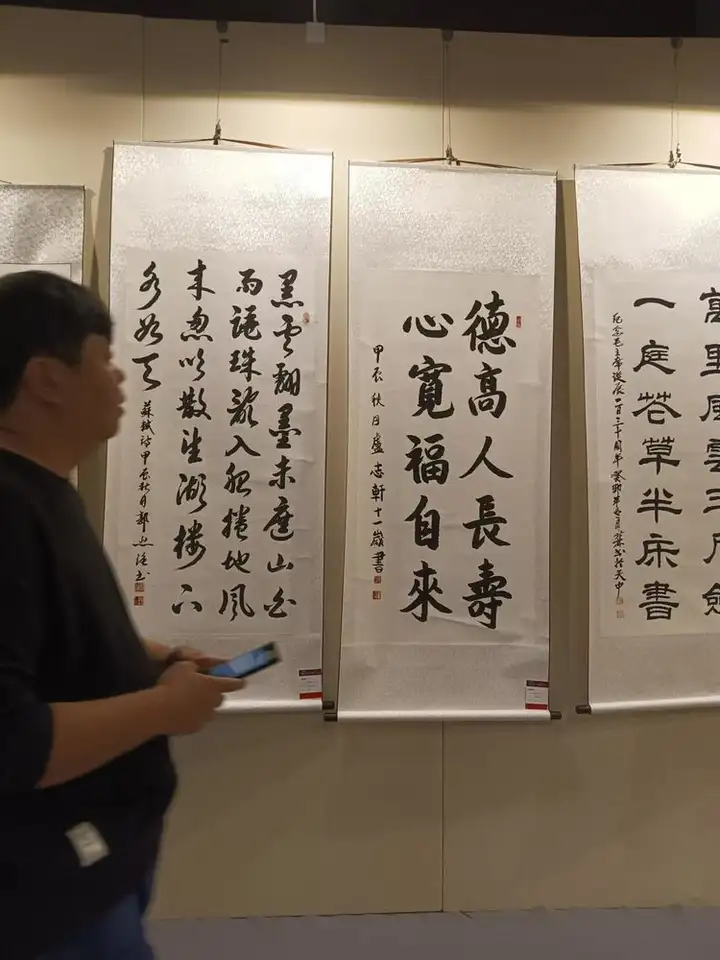 萬里風雲三尺劍
一庭花草半床書
紀念毛主席誕辰一百三十周年
德高人長壽
心寬福自來
甲辰秋月盛志軒十一歲書
黑雲翻墨未遮山白
雨跳珠亂入船捲地風
来忽吹散望湖樓下
水如天
蘇軾詩甲辰秋月郭